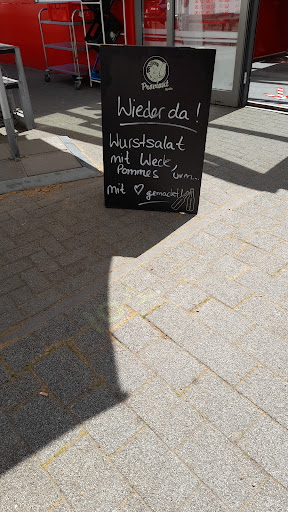 Wieder da!
Wurstsalat
mit Weck
Pommes uvm...
mit ♡ gemacht!